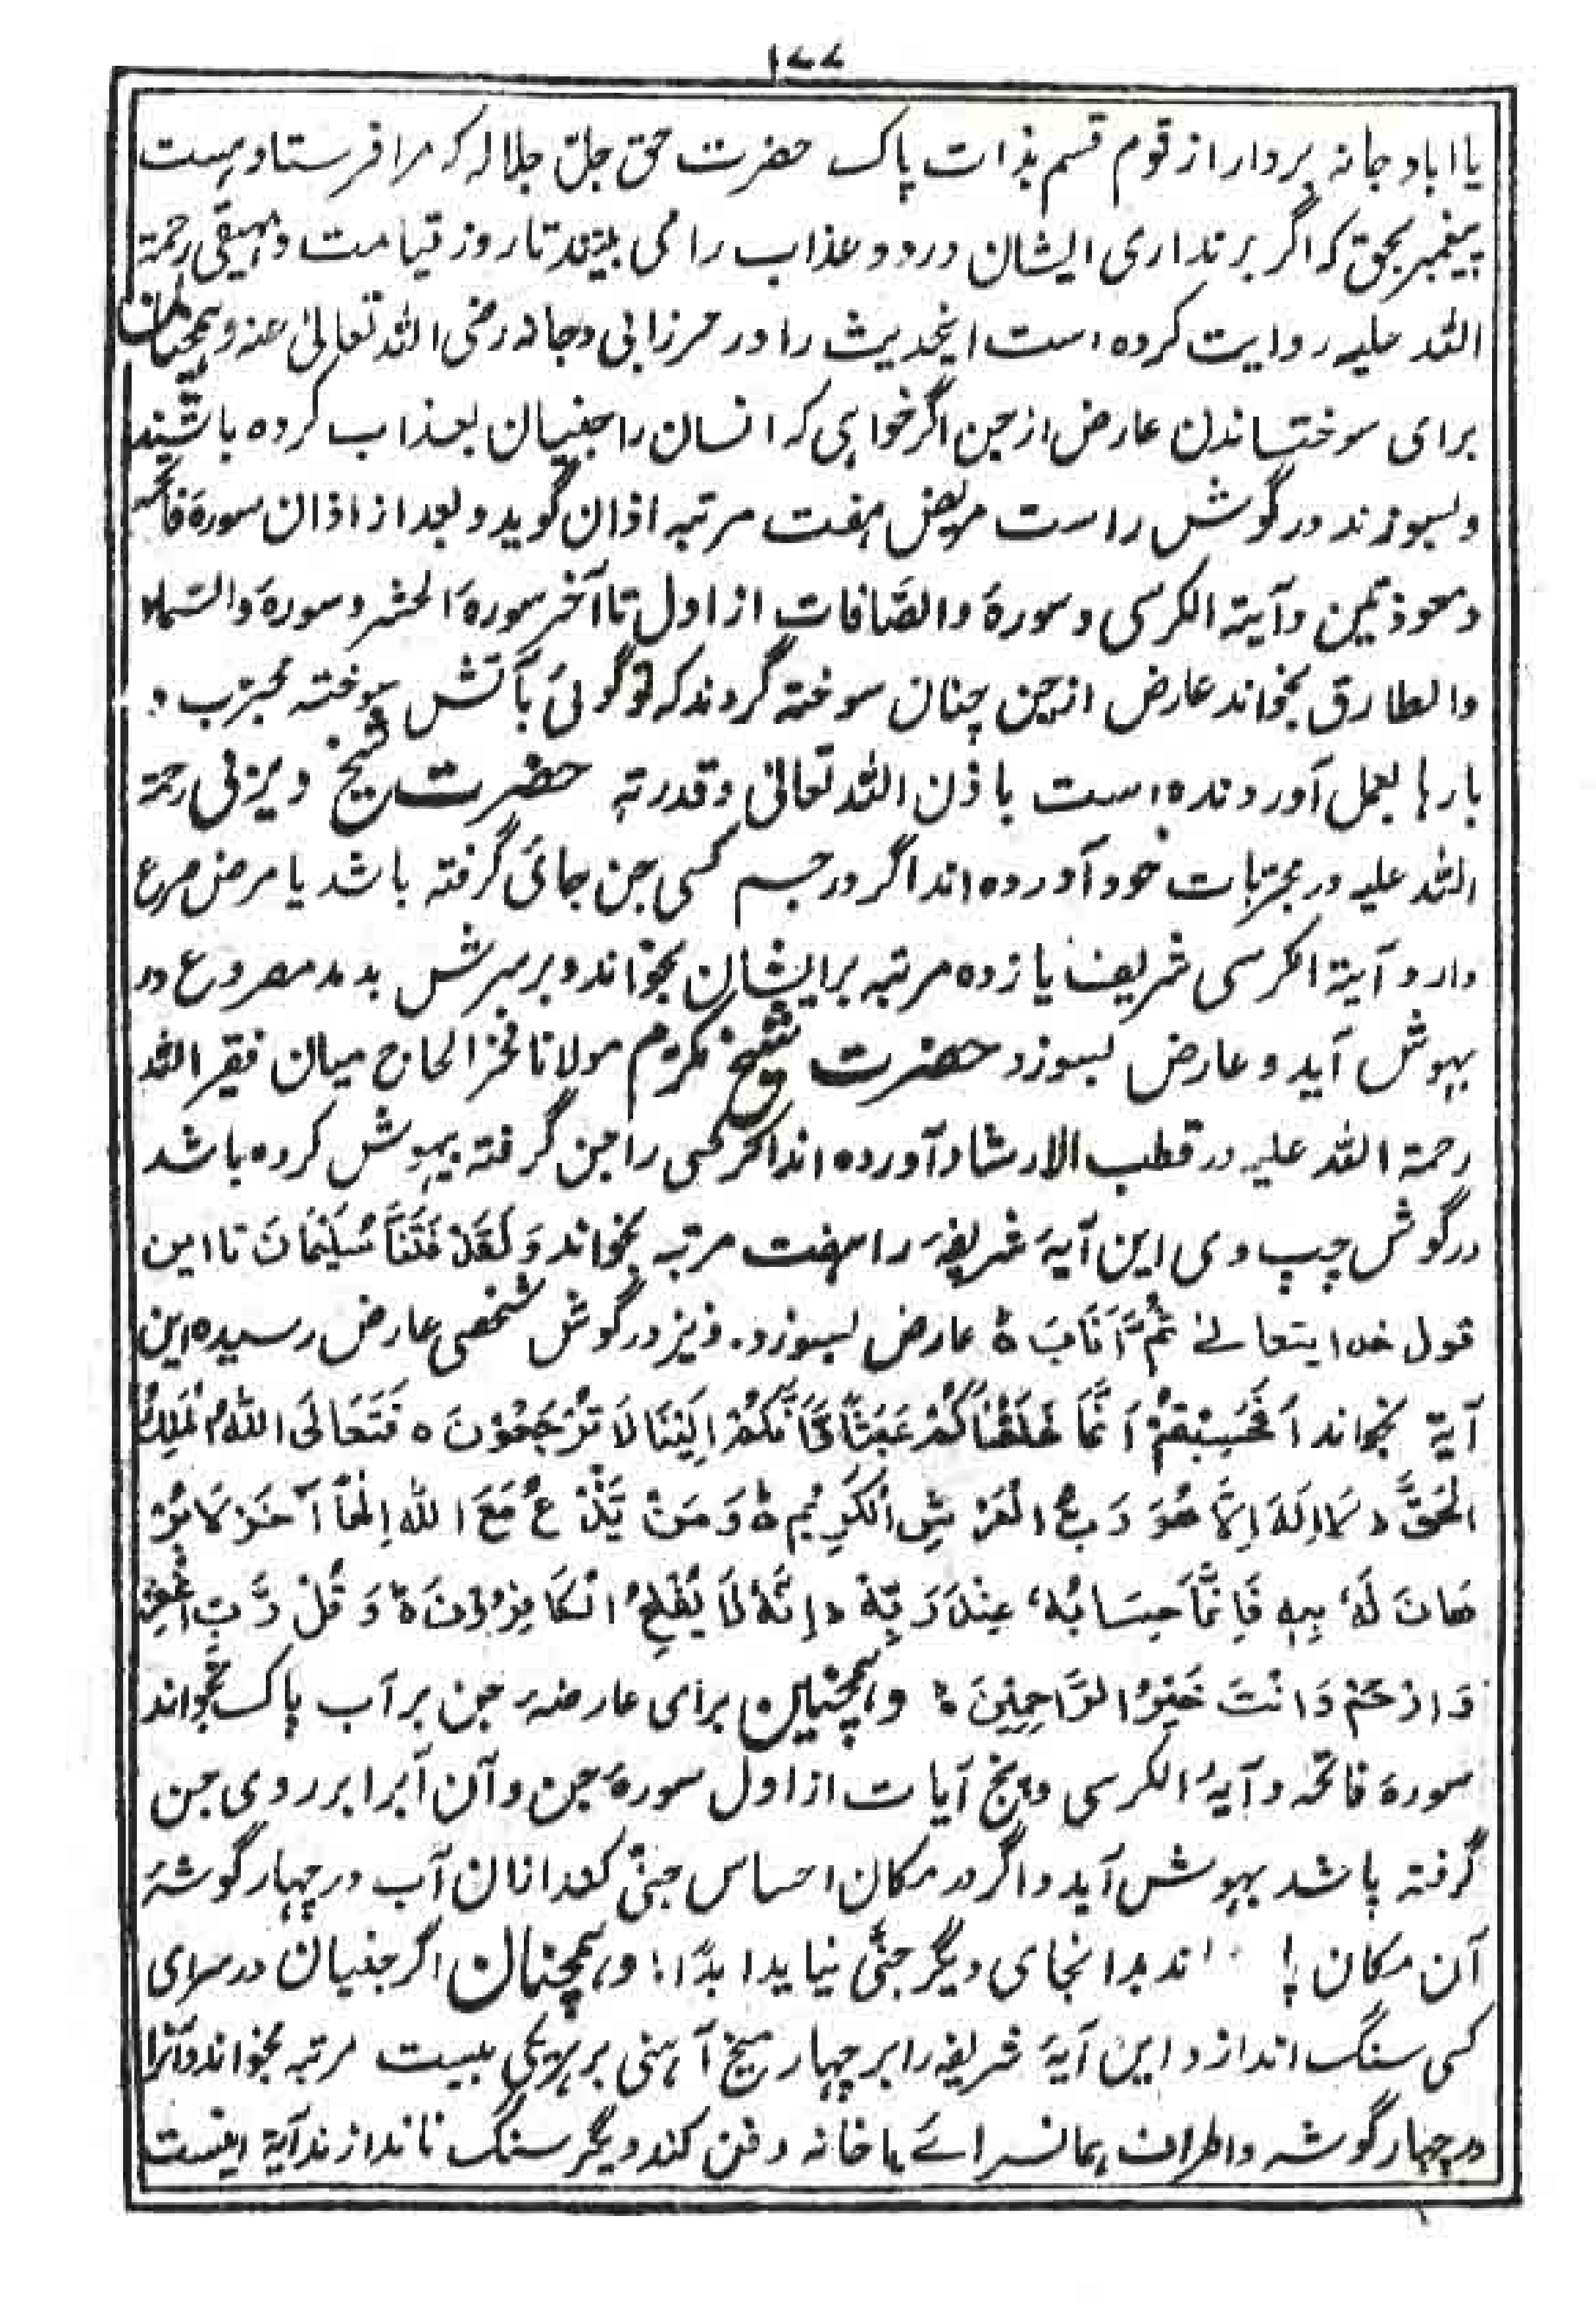 ۱۷۷
یا ابا دجانه بردار از قوم قسم بذات پاک حضرت حق جل جلاله که مرا فرستاد بست
پیغمبر بحق که اگر برنداری ایشان درد و عذاب را می بینند تا روز قیامت و بیهقی رحمة
الله علیه روایت کرده است اینحدیث را در حرز ابی دجانه رضی الله تعالیٰ عنه و همچنان
برای سوختاندن عارض از جن اگر خواهی که انسان را جنیان بعذاب کرده باشند
و بسوزند در گوش راست مریض هفت مرتبه اذان گوید و بعد از اذان سورهٔ فاتحه
و معوذتین و آیة الکرسی و سورهٔ والصّافات از اول تا آخر سورهٔ الحشر و سورهٔ والسّماء
والطارق بخواند عارض از جن چنان سوخته گردند که تو گوئی بآتش سوخته مجرّب و
بارها بعمل آوردنده است باذن الله تعالیٰ وقدرته حضرت شیخ دیزنی رحمة
الله علیه در مجرّبات خود آورده اند اگر در جسم کسی جن جائی گرفته باشد یا مرض صرع
دارد آیة الکرسی شریف یازده مرتبه بر ایشان بخواند و بر سرش بدمد مصروع در
بهوش آید و عارض بسوزد حضرت شیخ مکرم مولانا فخر الحاج میان فقیر الله
رحمة الله علیه در قطب الارشاد آورده اند اگر کسی را جن گرفته بیهوش کرده باشد
در گوش چپ وی این آیهٔ شریفهٔ را هفت مرتبه بخواند وَلَقَدْ فَتَنَّا سُلَیْمَانَ تا این
قول خدایتعالے ثُمَّ اَنَابَ ۃ عارض بسوزد. و نیز در گوش شخصی عارض رسیده این
آیة بخواند اَفَحَسِبْتُمْ اَنَّمَا خَلَقْنَاکُمْ عَبَثًا وَّاَنَّکُمْ اِلَیْنَا لَا تُرْجَعُوْنَ ہ فَتَعَالَی اللهُ الْمَلِکُ
الْحَقُّ ۚ لَا اِلٰهَ اِلَّا هُوَ رَبُّ الْعَرْشِ الْکَرِیْمِ ۃ وَ مَنْ یَّدْعُ مَعَ اللهِ اِلٰهًا آخَرَ لَا بُرْ
هَانَ لَهٗ بِهٖ فَاِنَّمَا حِسَابُهٗ عِنْدَ رَبِّهٖ ۚ اِنَّهٗ لَا یُفْلِحُ الْکَافِرُوْنَ ۃ وَ قُلْ رَّبِّ اغْفِرْ
وَارْحَمْ وَاَنْتَ خَیْرُ الرَّاحِمِیْنَ ۃ و همچنین برای عارضهٔ جن بر آب پاک بخواند
سورهٔ فاتحه و آیهٔ الکرسی و پنج آیات از اول سورهٔ جن و آن آبرا بر روی جن
گرفته پاشد بهوش آید و اگر در مکان احساس جنّی کعد ازان آب در چهار گوشهٔ
آن مکان اند بدانجای دیگر جنّی نیاید ابدًا؛ و همچنان اگر جنیان در سرای
کسی سنگ اندازد این آیهٔ شریفه را بر چهار میخ آهنی بر هر یکی بیست مرتبه بخواند و آنرا
در چهار گوشه و اطراف همانسراے یا خانه دفن کند دیگر سنگ نا ندازند آیة اینست